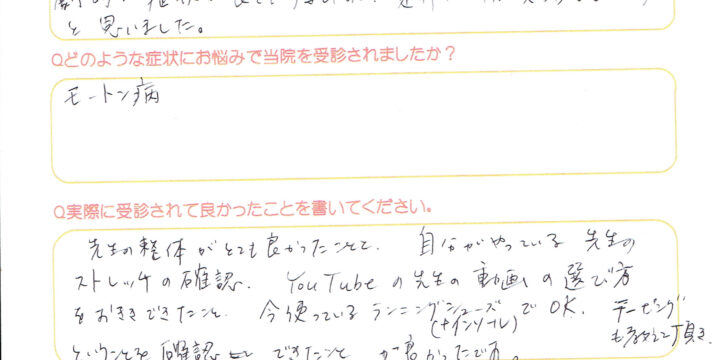 と思いました。
Qどのような症状にお悩みで当院を受診されましたか？
モートン病
Q実際に受診されて良かったことを書いてください。
先生の整体がとても良かったことと、自分がやっている先生の
ストレッチの確認、YouTubeの先生の動画の選び方
をおききできたこと、今使っているランニングシューズでOK、テーピング
(+インソール)も教えて頂き
ということを確認 できたことが良かったです。